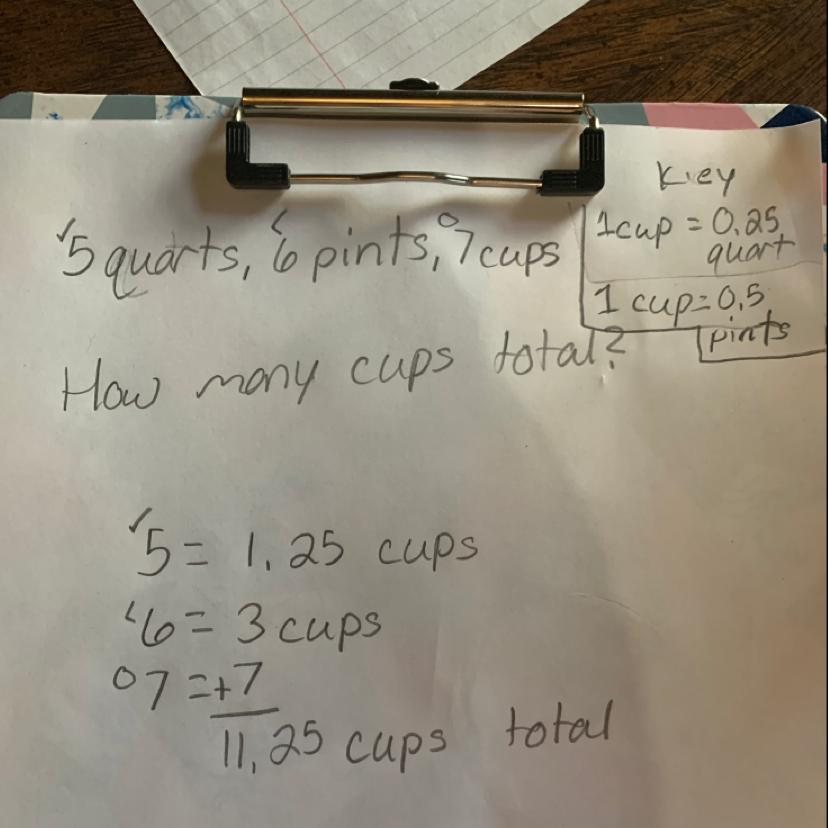 Key
1 cup = 0.25
quart
1 cup = 0.5
pints
✓5 quarts, 6 pints, 7 cups
How many cups total?
✓5 = 1.25 cups
6 = 3 cups
07 = +7
11.25 cups total